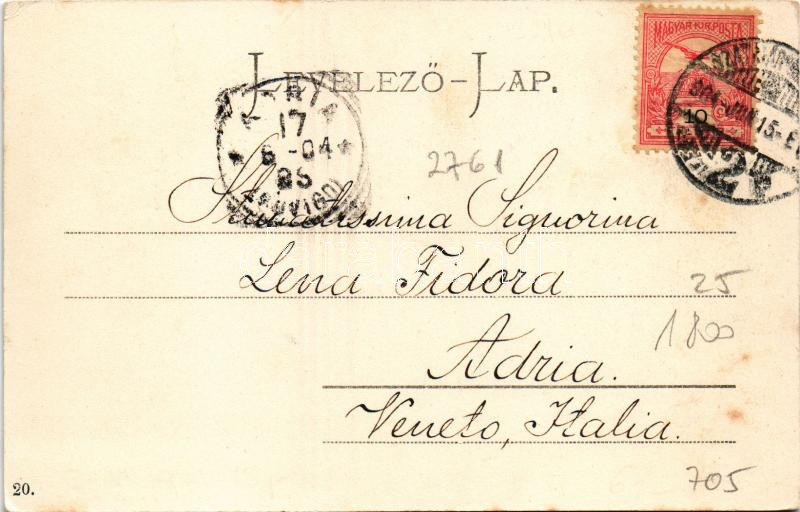 MAGYAR KIR. POSTA
10
LEVELEZŐ-LAP.
ADRIA
17
6-04
(ROVIGO)
2761
Stimatissima Signorina
Lena Fidora
25
1800
Adria.
Veneto, Italia.
705
20.